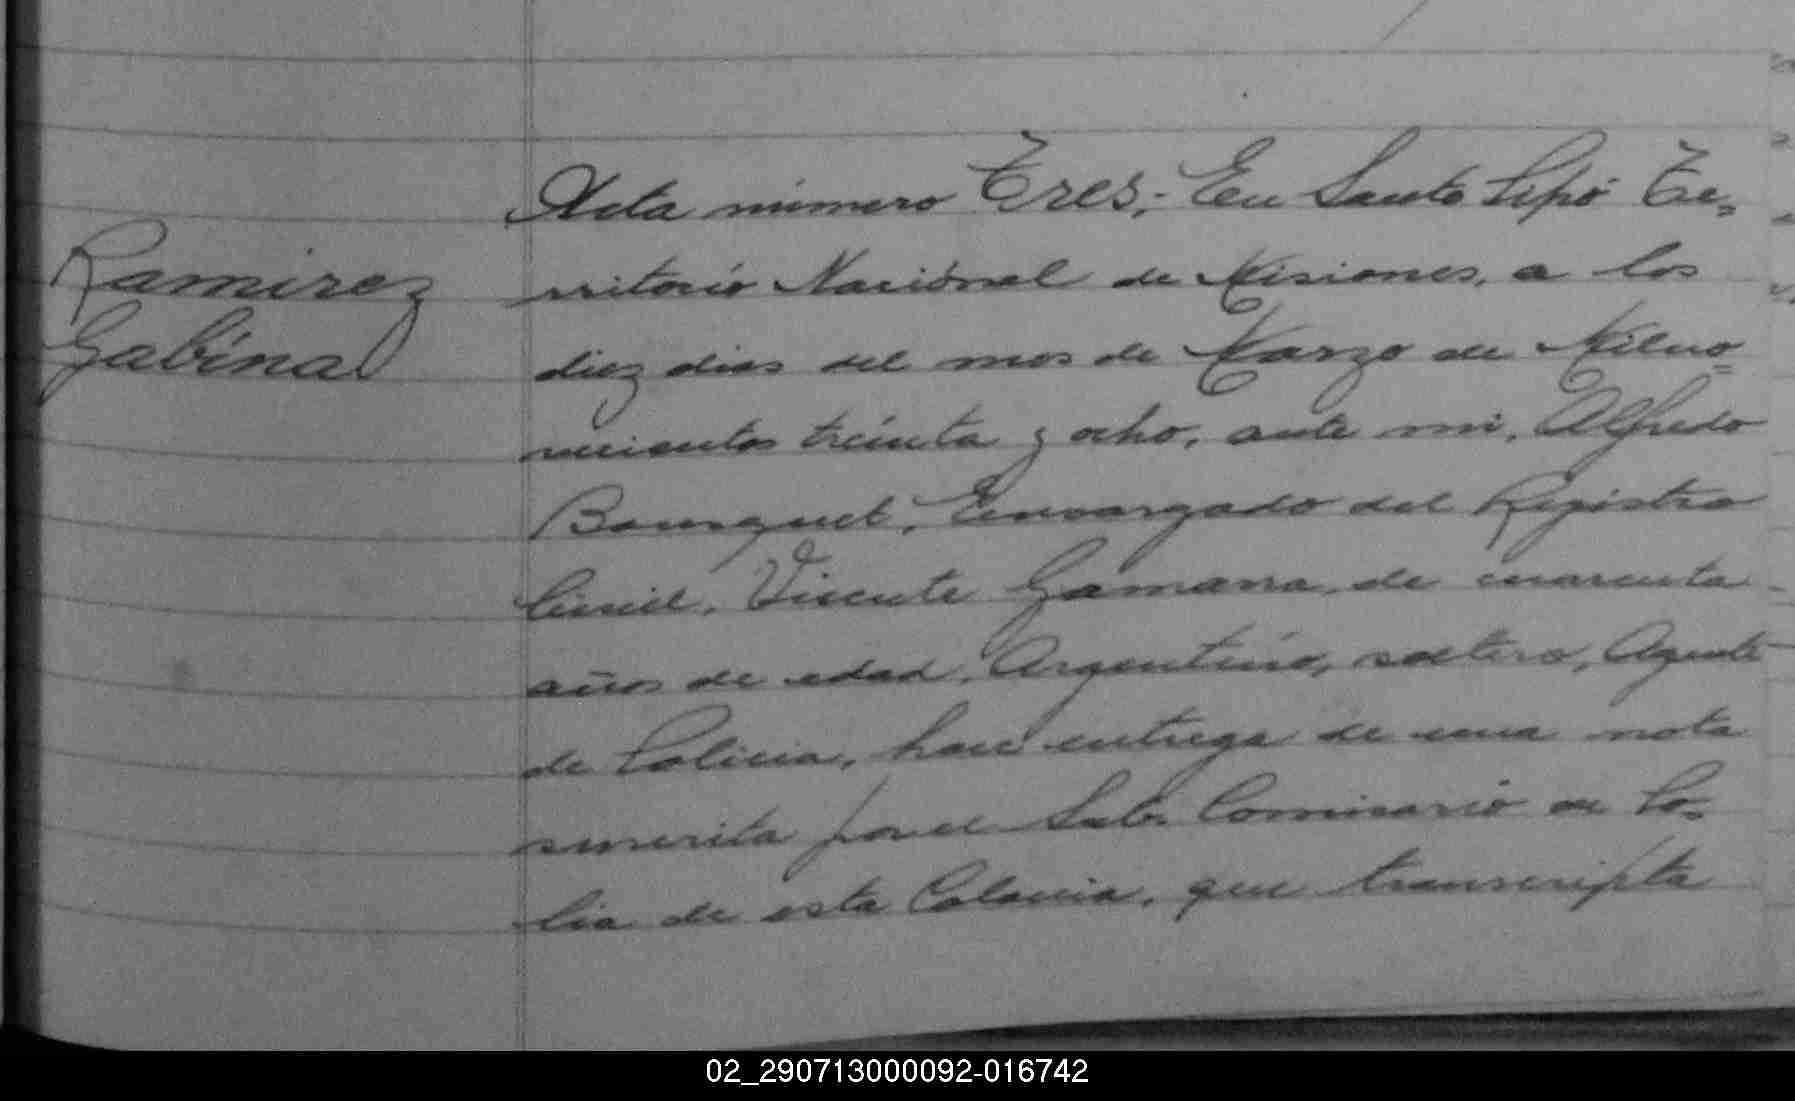 Ramirez
Gabina
Acta número Tres.- En Santo Pipó Te=
rritorio Nacional de Misiones, a los
diez dias del mes de Marzo de Milno=
vecientos treinta y ocho, ante mi, Alfredo
Bousquet, Encargado del Registro
Civil, Vicente Gamarra, de cuarenta
años de edad, Argentino, soltero, Agente
de Policia, hace entrega de una nota
suscrita por el Sub. Comisario de Po=
licia de esta Colonia, que transcripta
02_290713000092-016742